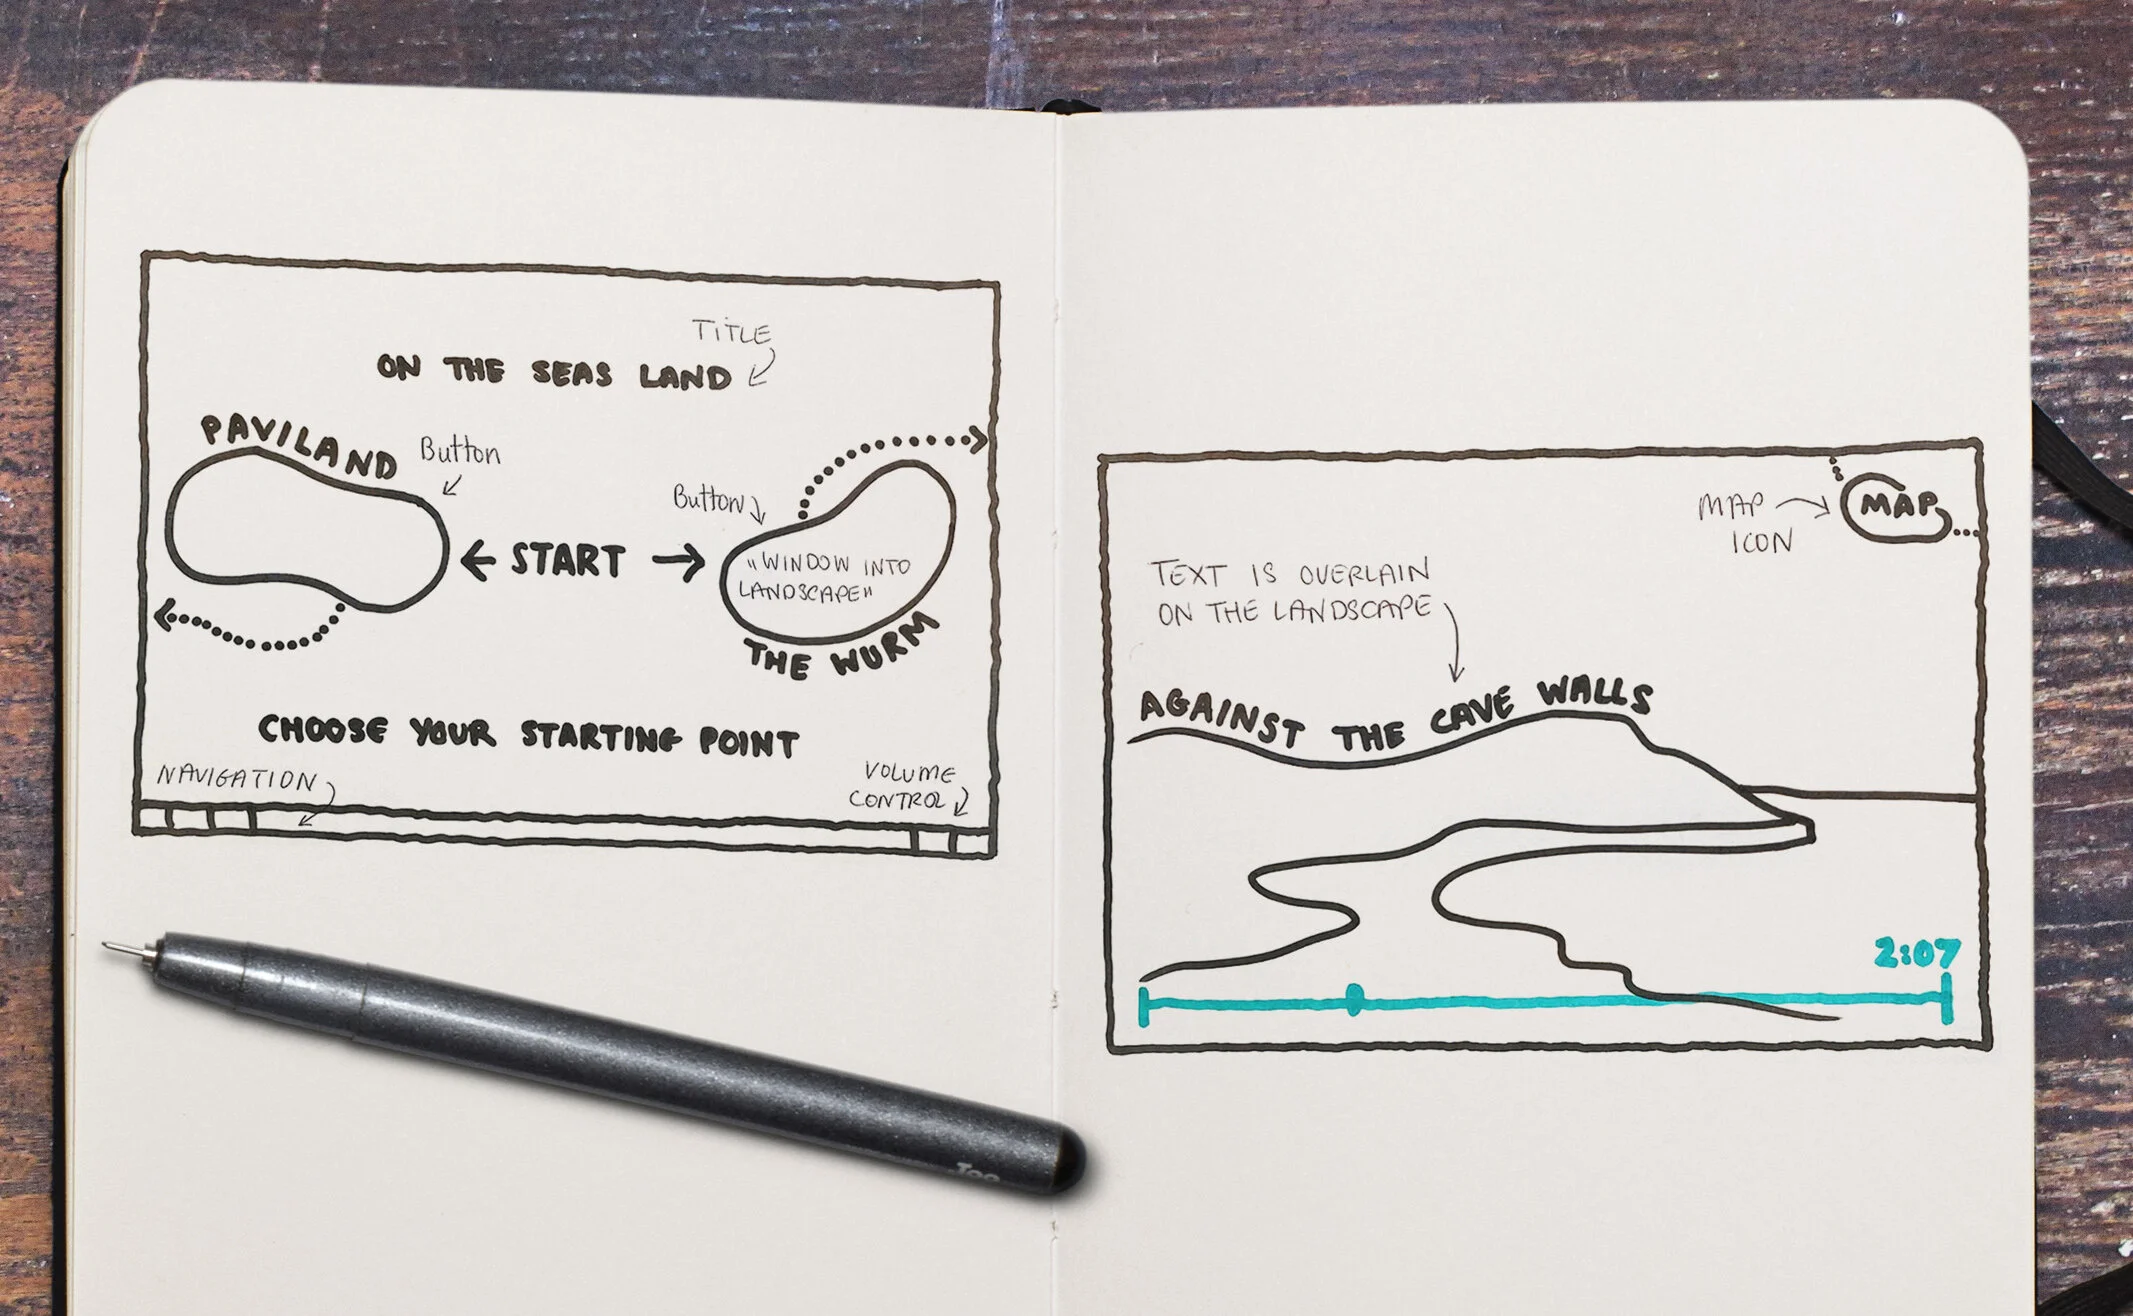 TITLE
ON THE SEAS LAND
PAVILAND
Button
Button
← START →
"WINDOW INTO
LANDSCAPE"
THE WURM
CHOOSE YOUR STARTING POINT
NAVIGATION
VOLUME
CONTROL
MAP
MAP
ICON
TEXT IS OVERLAIN
ON THE LANDSCAPE
AGAINST THE CAVE WALLS
2:07